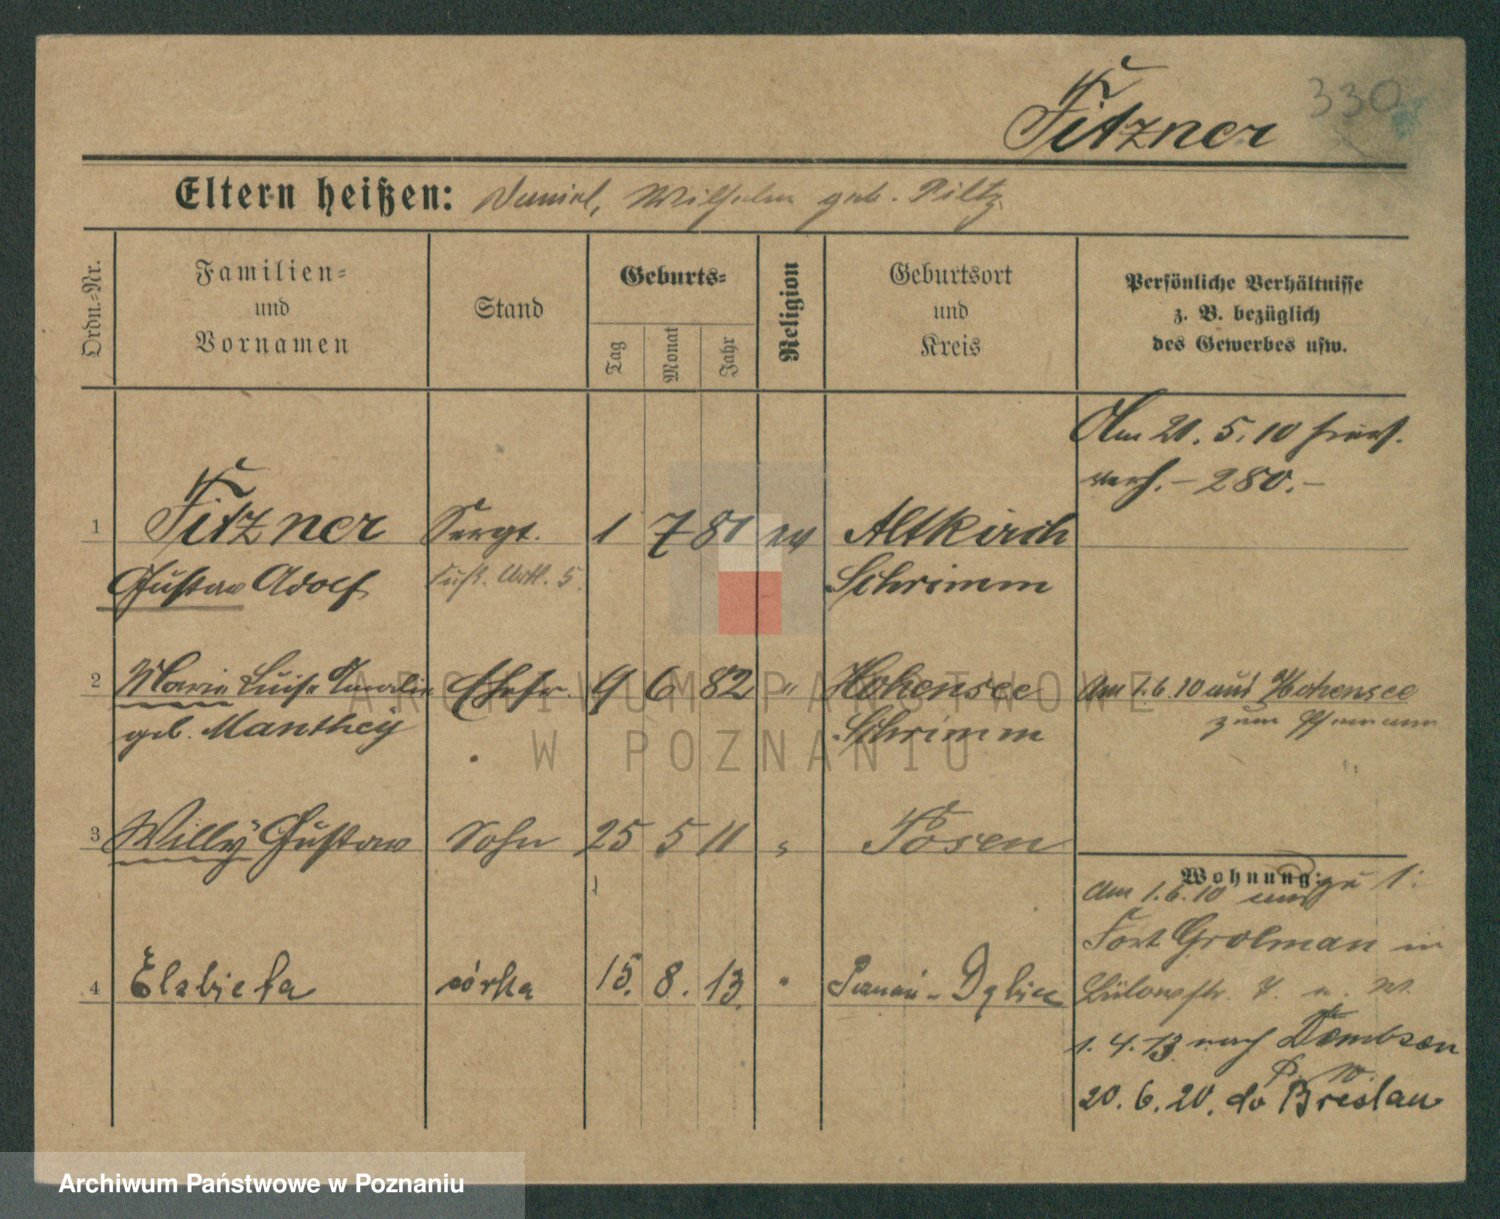 330
Fitzner
Eltern heißen: Daniel, Wilhelm geb. Piltz
Ordn.=Nr.
Familien=
und
Vornamen
Stand
Geburts=
Tag
Monat
Jahr
Religion
Geburtsort
und
Kreis
Persönliche Verhältnisse
z. B. bezüglich
des Gewerbes usw.
Am 21. 5. 10 hier
verh. – 280. –
1 Fitzner Sergt. 1 7 81 ev Altkirch
Gustav Adolf Fuß. Artl. 5. Schrimm
2 Marie Luise Ehefr. 9 6 82 " Hohensee Am 1. 6. 10 aus Hohensee
geb. Manthey Schrimm zum Ehemann
3 Willy Gustav Sohn 25 5 11 " Posen
Wohnung:
Am 1. 6. 10 zu 1:
Fort Grolman in
4 Elzbieta córka 15. 8. 13. " Poznań - Dębiec
Bülowstr. 7. n. W.
1. 4. 13 nach Dembsen
P. W.
20. 6. 20. do Breslau
ARCHIWUM PAŃSTWOWE
W POZNANIU
Archiwum Państwowe w Poznaniu